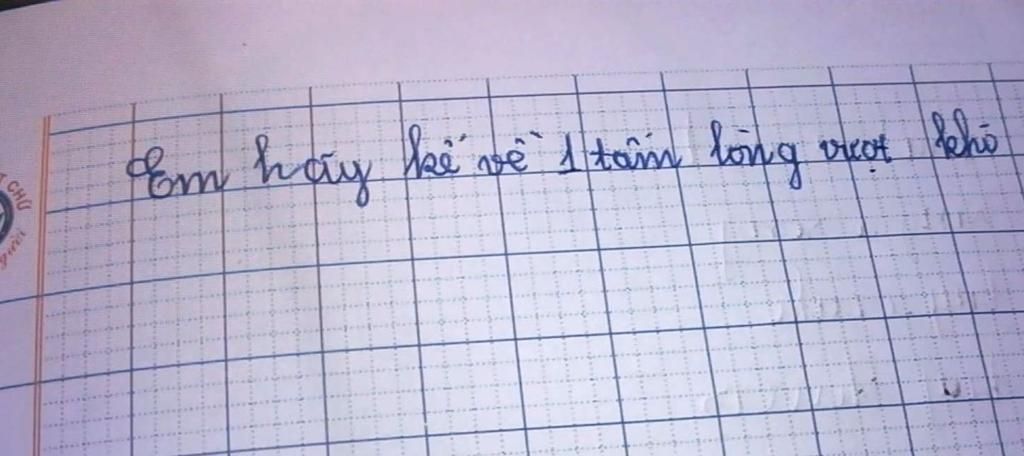 Em hãy kể về 1 tấm lòng vượt khó
CHỮ
người